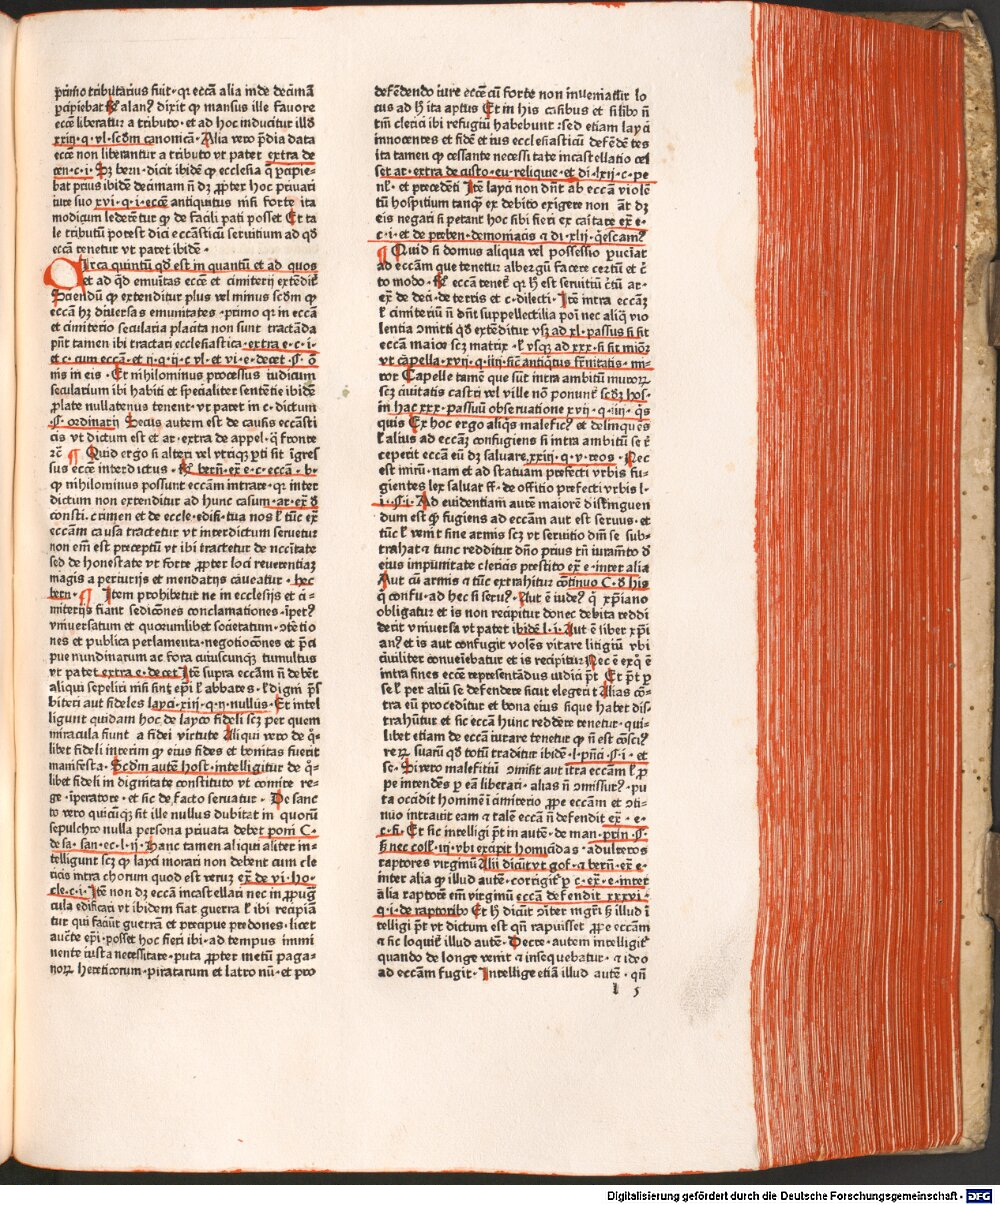 primo tributarius fuit · qr eccã alia inde decimã
pcipiebat alan⁹ dixit ꝙ mansus ille fauore
ecce liberatur a tributo · et ad hoc inducitur illđ
xxiij · q · vl · scđm canonicã · Alia vero p̃dia data
ecce non liberantur a tributo vt patet extra de
cen · c · i · bern · dicit ibidē ꝙ ecclesia q̃ pcipie-
bat prius ibidē decimam ñ dȝ ꝓpter hoc priuari
iure suo xvi · q · i · ecce antiquitus nisi forte ita
modicum lederētur ꝙ de facili pati posset Et ta
le tributũ potest dici eccãsticũ seruitium ad qđ
eccã tenetur vt patet ibidē ·
Circa quintũ qđ est in quantũ et ad quos
et ad qđ emuitas ecce et cimiterij extēdit̃
Sciendũ ꝙ extenditur plus vel minus scđm ꝙ
eccã hȝ diuersas emunitates · primo qr in eccã
et cimiterio secularia placita non sunt tractãda
pñt tamen ibi tractari ecclesiastica · extra e · c · i ·
et c · cum eccã · et ij · q · ij · c vl · et vi · e · decet · ¶ · õ
nis in eis · Et nihilominus processus iudicum
secularium ibi habiti et specialiter sentētie ibidē
plate nullatenus tenent · vt patet in c · dictum
· ¶ · ordinarij Secus autem est de causis eccãsti
cis vt dictum est et ar · extra de appel · q̃ fronte
ꝛc̃ ¶ Quid ergo si alteri vel vtriqȝ pti sit ĩgres
sus ecce interdictus · bern̄ · ex̃ e · c · eccã · b ·
ꝙ nihilominus possunt eccãm intrare · qr inter
dictum non extenditur ad hunc casum · ar · ex̃ đ
consti · c̃ nimen et de eccle · edifi · tua nos ł tũc ex̃
eccãm causa tractetur vt interdictum seruetur
non em̄ est preceptũ vt ibi tractetur de nccĩtate
sed de honestate vt forte ꝓpter loci reuerentiaȝ
magis a periurijs et mendatijs caueatur · hec
bern · ¶ Item prohibetur ne in ecclesijs et ci-
miterijs fiant sedicões conclamationes · ĩpet⁹
vniuersatum et quorumlibet societatum · ɔtētio
nes et publica perlamenta · negotiocões et p̃ci
pue nundinarum ac fora cuiuscunqȝ tumultus
vt patet extra e · decet Itē supra eccãm ñ debēt
aliqui sepeliri nisi sint epĩ ł abbates · ł digni p̃s
biteri aut fideles layci · xiij · q · ij · nullus · Et intel
ligunt quidam hoc de layco fideli scȝ per quem
miracula fiunt a fidei virtute Aliqui vero de q̃-
libet fideli interim ꝙ eius fides et bonitas fuerit
manifesta · Scđm autē Host · intelligitur de q̃-
libet fideli in dignitate constituto vt comite re-
ge · ĩperatore · et sic de facto seruatur · De sanc
to vero quicũqȝ sit ille nullus dubitat in quorũ
sepulchro nulla persona priuata debet poni C ·
de sa · san · ec · l · ij · Hanc tamen aliqui aliter in-
telligunt scȝ ꝙ layci morari non debent cum cle
ricis intra chorum quod est veruȝ ex̃ de vi · ho-
cle · c · i · Itē non dȝ eccã incastellari nec in ꝓpug̃
cula edificari vt ibidem fiat guerra ł ibi recipiã
tur qui faciũt guerrã et precipue predones · licet
auc̃te epĩ · posset hoc fieri ibi · ad tempus immi
nente iusta necessitate · puta ꝓpter metũ paga-
noꝝ hereticorum · piratarum et latro nũ · et pro
defēdendo iure ecce cũ forte non inueniat̃ur lo
cus ad h̃ ita aptus Et in his casibus et silibo ñ
tm̄ clerici ibi refugiũ habebunt · sed etiam layci
innocentes et fidē et ius ecclesiasticũ defēdē tes
ita tamen ꝙ cessante necessitate incastellatio ces
set ar · extra de custo · eu · relique · et di · lxij · c · pe
nł · et precedēti Itē layci non dñt ab eccãm violē
tũ hospitium tanqȝ ex debito exigere non ãt dȝ
eis negari si petant hoc sibi fieri ex caitate ex̃ e ·
c · i · et de preben · demoniacis ⁊ di · xlij · q̃escam⁹
¶ Quid si domus aliqua vel possessio ꝓuciat
ad eccãm que tenetur albergũ facere certũ et c̃
to modo · eccã tenet̃ qr h̃ est seruitiũ c̃tũ ar ·
ex̃ de deci · de terris et c · dilecti · Itē intra eccãȝ
ł cimiteriũ ñ dñt suppellectilia poni nec aliqȝ vio
lentia ɔmitti qđ extēditur vsȝ ad xl · passus si sit
eccãm maior scȝ matrix · ł vsqȝ ad xxx · si sit miõȝ
vt cãpella · xvij · q · iiij · sic antiq̃tus fr̃nitatis · mi-
nor Capelle tamē que sũt intra ambitũ muroꝝ
scȝ ciuitatis castri vel ville nõ ponunt̃ scđȝ hos ·
in hac xxx · passuũ obseruatione xvij · q · iiij · q̃s
quis Ex hoc ergo aliq̃s malefic⁹ et delinquēs
ł alius ad eccãȝ confugiens si intra ambitũ se r̃
ceperit eccã eũ dȝ saluare · xxiij · q · v · reos · Nec
est mirũ · nam et ad statuam prefecti vrbis fu-
gientes lex saluat ff · de offitio prefecti vrbis l ·
i · ¶ · i · Ad euidentiam autē maiorē distinguen
dum est ꝙ fugiens ad eccãm aut est seruus · et
tũc ł venit sine armis scȝ vt seruitio dñi se sub-
trahat ⁊ tunc redditur dño prius tñ iuram̃to đ
eius impunitate clericis prestito ex̃ e · inter alia
Aut cũ armis ⁊ tũc extrahitur cõtinuo C · đ his
q̃ confu · ad hec si seru⁹ · Aut ē iude⁹ q̃ xp̃iano
obligatur et is non recipitur donec debita reddi
derit vniuersa vt patet ibidē l · i · Aut ē liber xp̃i
an⁹ et is aut confugit volēs vitare litigiũ vbi
ciuiliter conueniebatur et is recipitur Nec ē exq̃ ē
intra fines ecce representãdus iudici p̃t Et p̃t p
se ł per aliũ se defendere sicut elegerit Alias cõ-
tra eũ proceditur et bona eius siqua habet dis-
trahũtur et sic eccã hunc reddere tenetur · qui-
libet etiam de eccã iurare tenetur ꝙ ñ est cõsci⁹
reꝝ suarũ qđ totũ traditur ibidē · l · pñci · ¶ · i · et
se · Si vero malefitiũ ɔmisit aut ĩtra eccãm ł ꝓ
pe intendēs p eã liberari · alias ñ ɔmissur⁹ · pu
ta occidit hominē ĩ cimiterio ꝓpe eccãm et ɔti-
nuo intrauit eam ⁊ talē eccã ñ defendit ex̃ · e ·
c · fi · Et sic intelligi p̃t in autē · de man · prin · ¶
ꝗ nec cosł · iij · vbi excipit homicidas · adulteros
raptores virginũ Alij dicũt vt gof · ⁊ bern̄ · ex̃ e ·
inter alia ꝙ illud autē · corrigit̃ p c · ex̃ · e · inter
alia raptorē em̄ virginũ eccã defendit xxxvi ·
q · i · de raptoribo Et h̃ dicũt ɔiter mgr̃i ꝗ illud ĩ
telligi p̃t vt dictum est qñ rapuisset ꝓpe eccãm
⁊ sic loquit̃ illud autē · Decre · autem intelligit̃
quando de longe venit ⁊ insequebatur · ⁊ ideo
ad eccãm fugit · Intellige etiã illud autē · qñ
l 5
Digitalisierung gefördert durch die Deutsche Forschungsgemeinschaft - DFG